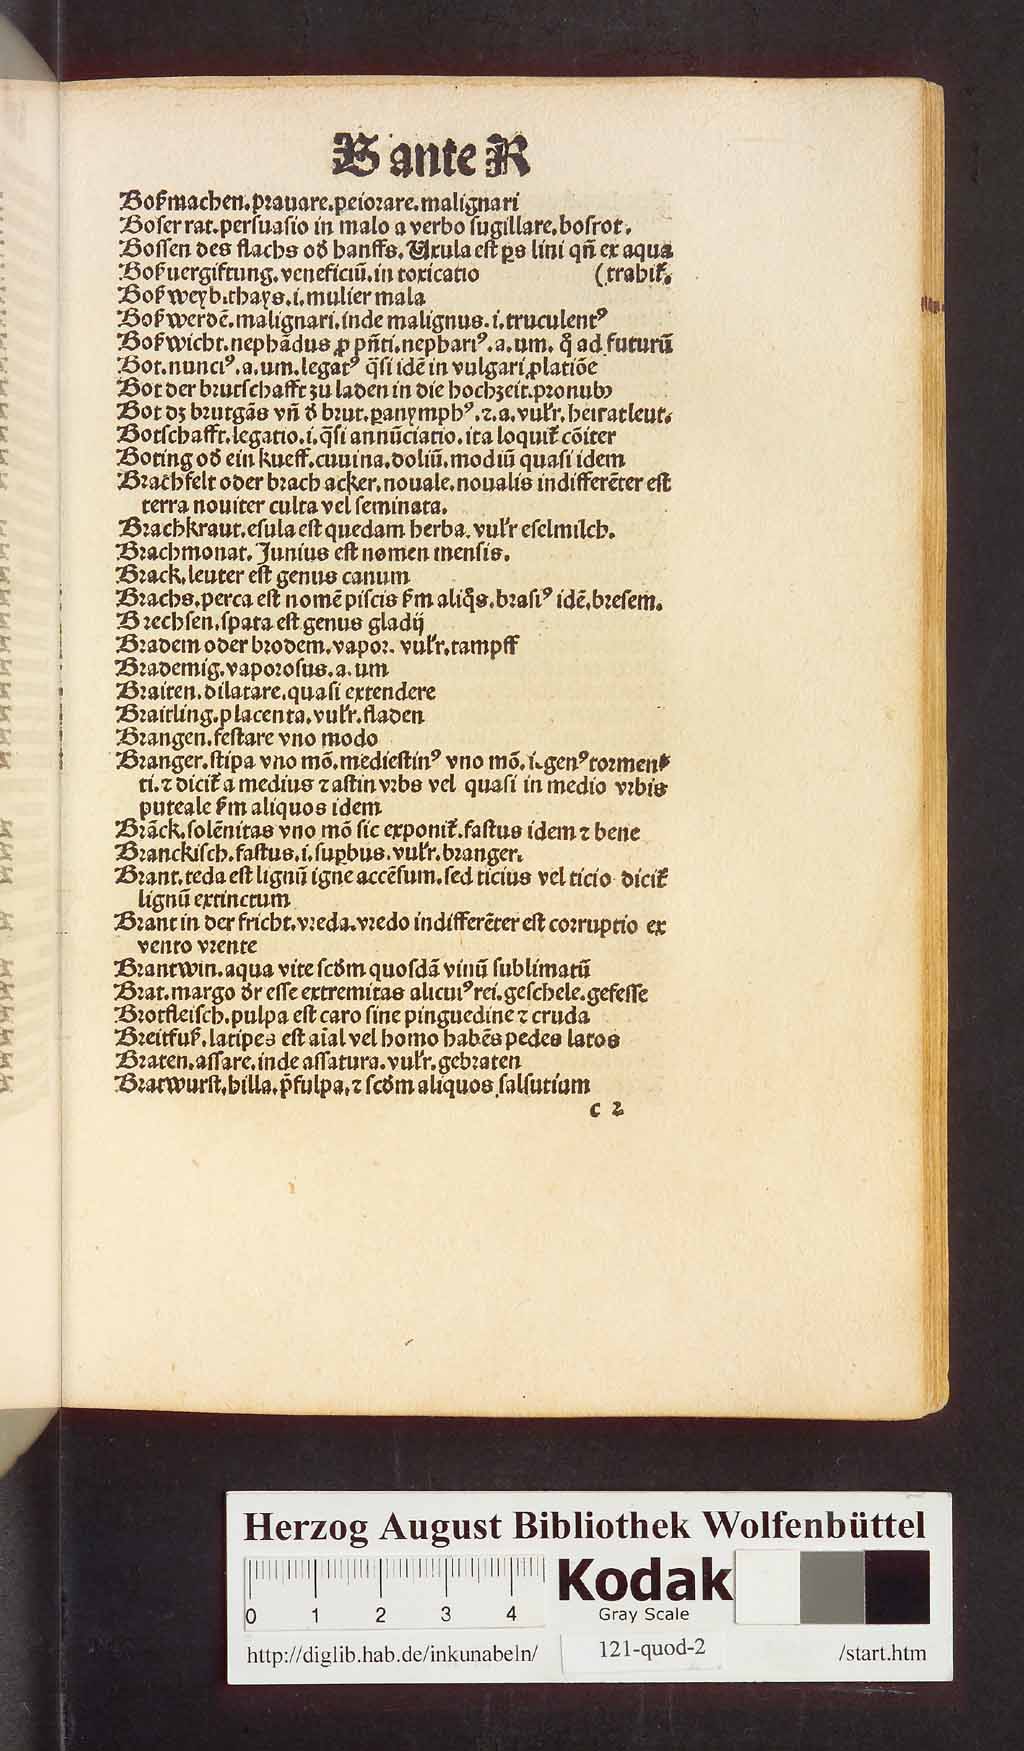 B ante R
Boßmachen.prauare.peiorare.malignari
Boser rat.persuasio in malo a verbo sugillare.bosrot.
Bossen des flachs oď hanffs. Uxula est ps lini qñ ex aqua
Boßuergiftung.veneficiū.in toxicatio (trahit̃.
Boßweyb.thays.i.mulier mala
Boßwerdē.malignari.inde malignus.i.truculentꝰ
Boßwicht.nephādus ꝓ pn̄ti.nephariꝰ.a.um. ꝙ̃ ad futurū
Bot.nunciꝰ.a.um.legatꝰ q̄si idē in vulgari ꝓlatiōe
Bot der brutschafft zu laden in die hochzeit.pronubꝰ
Bot dz brutgās vñ ď brut.ꝑanymphꝰ.ꝛ.a.vul'r.heiratleut.
Botschafft.legatio.i.q̄si annūciatio.ita loquit̃ cōiter
Boting oď ein kueff.cuuina.doliū.modiū quasi idem
Brachfelt oder brach acker.nouale.noualis indifferēter est
terra nouiter culta vel seminata.
Brachkraut.esula est quedam herba.vul'r eselmilch.
Brachmonat. Junius est nomen mensis.
Brack.leuter est genus canum
Brachs.perca est nomē piscis ẜm aliq̄s.brasiꝰ idē.bresem.
Brechsen.spata est genus gladij
Bradem oder brodem.vapor. vul'r.tampff
Brademig.vaporosus.a.um
Braiten.dilatare.quasi extendere
Braitling.placenta.vul'r.fladen
Brangen.festare vno modo
Branger.stipa vno mō.mediestinꝰ vno mō.i.genꝰ tormen
ti.ꝛ dicit̃ a medius ꝛ astin vrbs vel quasi in medio vrbis
puteale ẜm aliquos idem
Brāck.solēnitas vno mō sic exponit̃.fastus idem ꝛ bene
Branckisch.fastus.i.suꝑbus.vul'r.branger.
Brant.teda est lignū igne accēsum.sed ticius vel ticio dicit̃
lignū extinctum
Brant in der fricht.vreda.vredo indifferēter est corruptio ex
vento vrente
Brantwin.aqua vite scďm quosdā vinū sublimatū
Brat.margo ďr esse extremitas alicuiꝰ rei.geschele.gefesse
Brotfleisch.pulpa est caro sine pinguedine ꝛ cruda
Breitfuß.latipes est aīal vel homo habēs pedes latos
Braten.assare.inde assatura.vul'r.gebraten
Bratwurst.hilla.p̄fulpa.ꝛ scďm aliquos salsutium
c 2
Herzog August Bibliothek Wolfenbüttel
0 1 2 3 4
Kodak
Gray Scale
http://diglib.hab.de/inkunabeln/ 121-quod-2 /start.htm